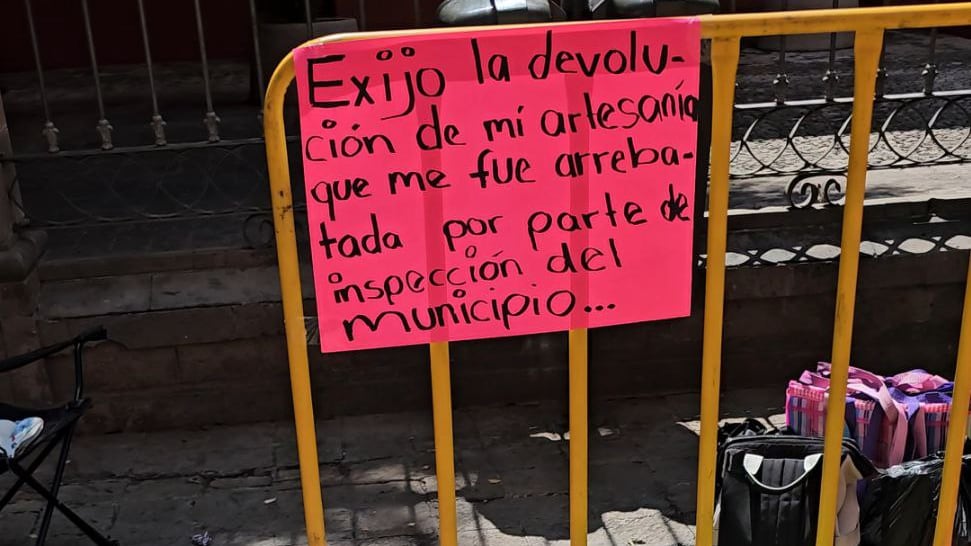 Exijo la devolu-
ción de mi artesanía
que me fue arreba-
tada por parte de
inspección del
municipio...